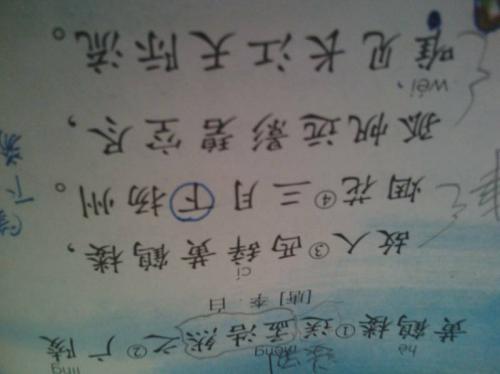 hè mèng líng
黄鹤楼①送孟浩然之②广陵
[唐] 李 白
cí
故人③西辞黄鹤楼，
烟花④三月下扬州。
孤帆远影碧空尽，
wéi
唯见长江天际流。